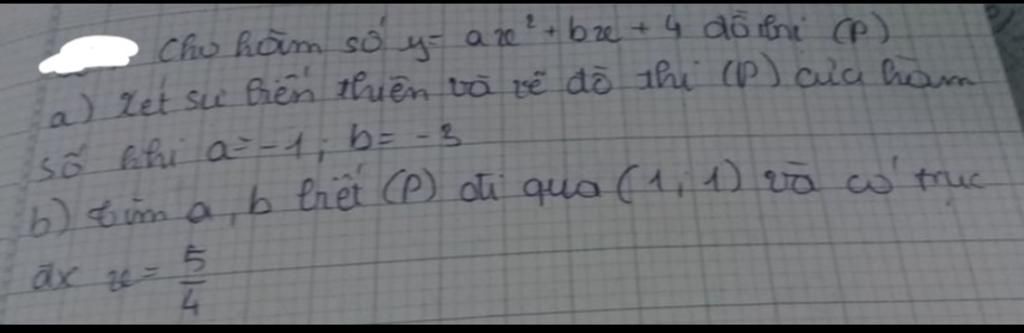 Cho hàm số y = ax² + bx + 4 đồ thị (P)
a) Xét sự biến thiên và vẽ đồ thị (P) của hàm
số khi a = -1 ; b = -3
b) tìm a, b biết (P) đi qua (1, 1) và có trục
đx x = 5/4